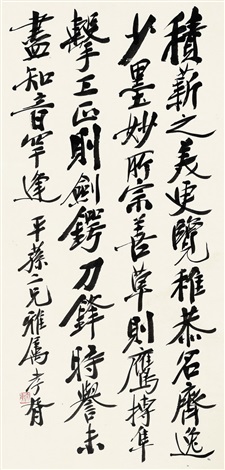 積薪之美更覽稚恭名齊逸
少墨妙所宗善草則鷹摶隼
擊工正則劍鍔刀鋒時譽未
盡知音罕逢 平蓀二兄雅屬 孝胥